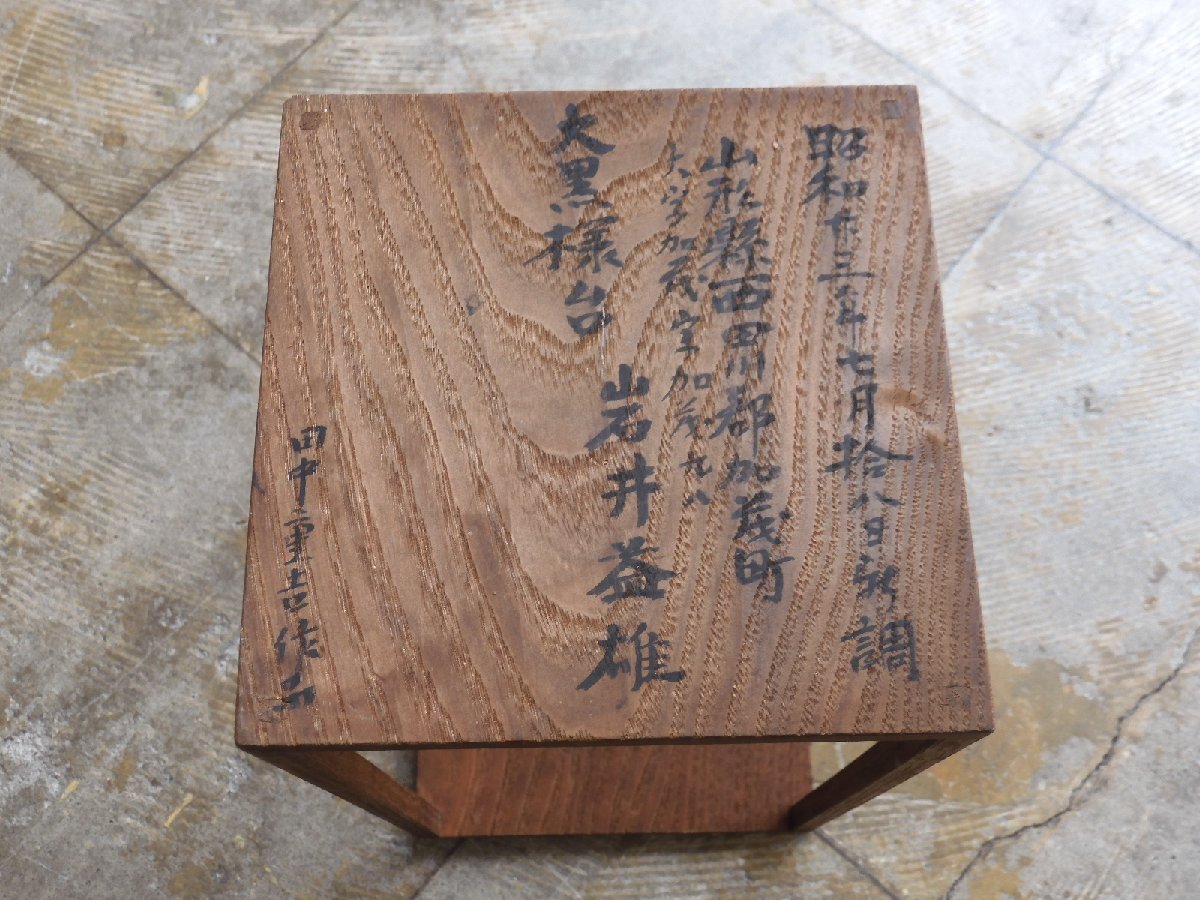 昭和十三年七月拾八日新調
山形縣西田川郡加茂町
大字加茂字加茂九八
大黒様台
岩井益雄
田中重吉作